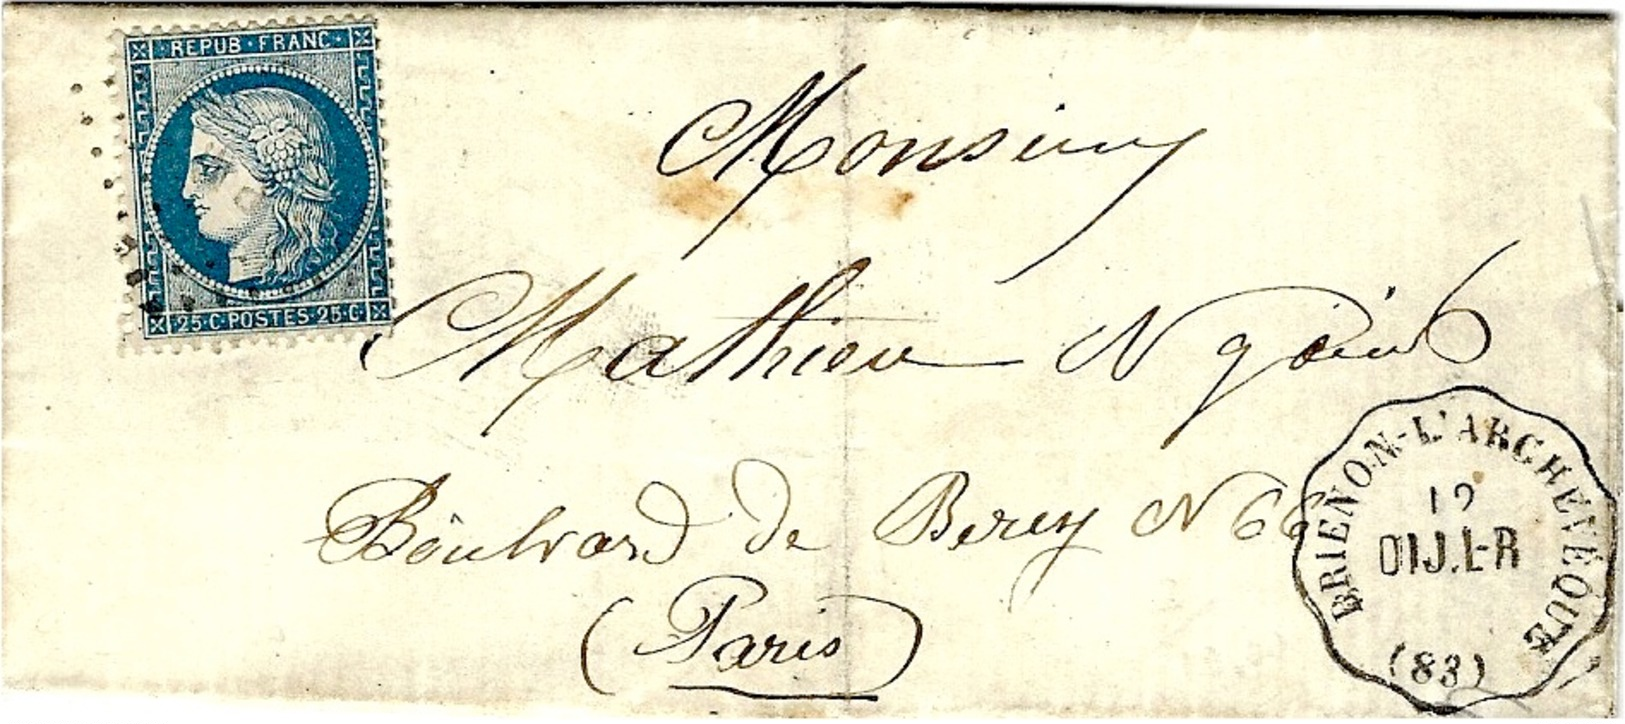 REPUB · FRANC ·
25 · C · POSTES · 25 · C
Monsieur
Mathieu Ngoin
Boulvard de Bercy N 66
(Paris)
BRIENON-L'ARCHEVÊQUE
12
DIJ.L-R
(83)